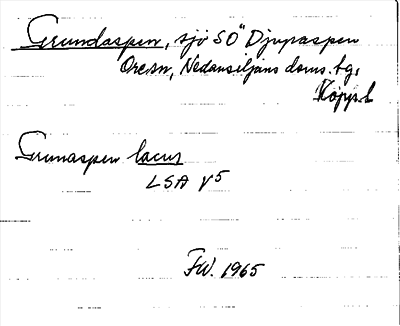 Grundaspen, sjö SO Djupaspen
Ore sn, Nedansiljans doms. tg,
Kopp. l
Grunaspen lacus
LSA V5
FW. 1965